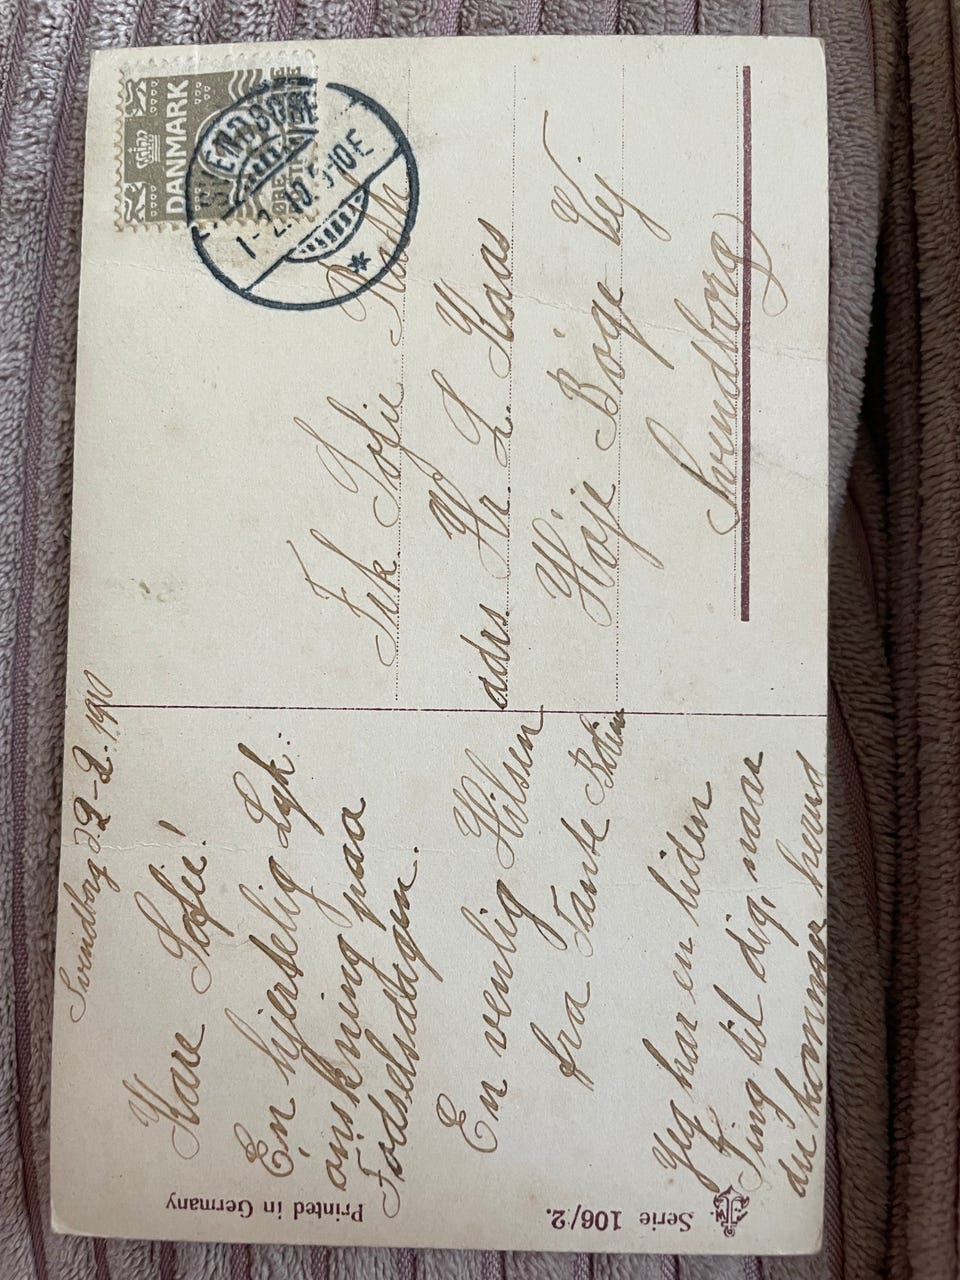 Svendborg d 2-2-1910
Kære Sofie!
En hjertelig Lyk:
ønskning paa
Fødselsdagen.
En venlig Hilsen
fra Tante
Jeg har en liden
Ting til dig, naar
du kommer
Frk. Sofie
adrs. Hr. L Kaas
Høje Bøge Vej
Svendborg
DANMARK
SVENDBORG
1-2.10.5-10E
Serie 106/2.
Printed in Germany